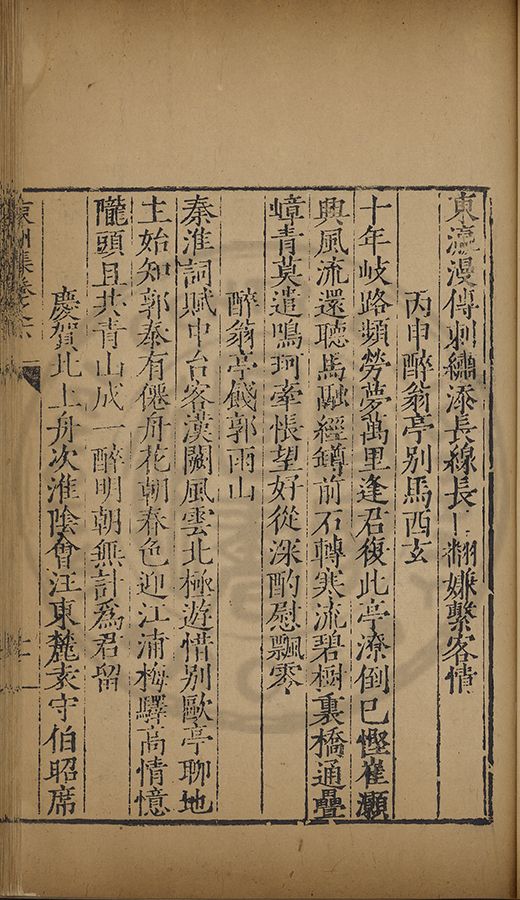 東瀛漫傳刺繡添長線長〻翻嫌繫客情
丙申醉翁亭别馬西玄
十年岐路頻勞夢萬里逢君復此亭潦倒已慳崔灝
興風流還聽馬融經罇前石轉寒流碧樹裏橋通疊
嶂青莫遣鳴珂牽悵望好從深酌慰飄零
醉翁亭餞郭雨山
秦淮詞賦中台客漢闕風雲北極遊惜别歐亭聊地
主始知郭泰有僊舟花朝春色迎江浦梅驛高情憶
隴頭且共青山成一醉明朝無計爲君留
慶賀北上舟次淮陰會汪東麓袁守伯昭席